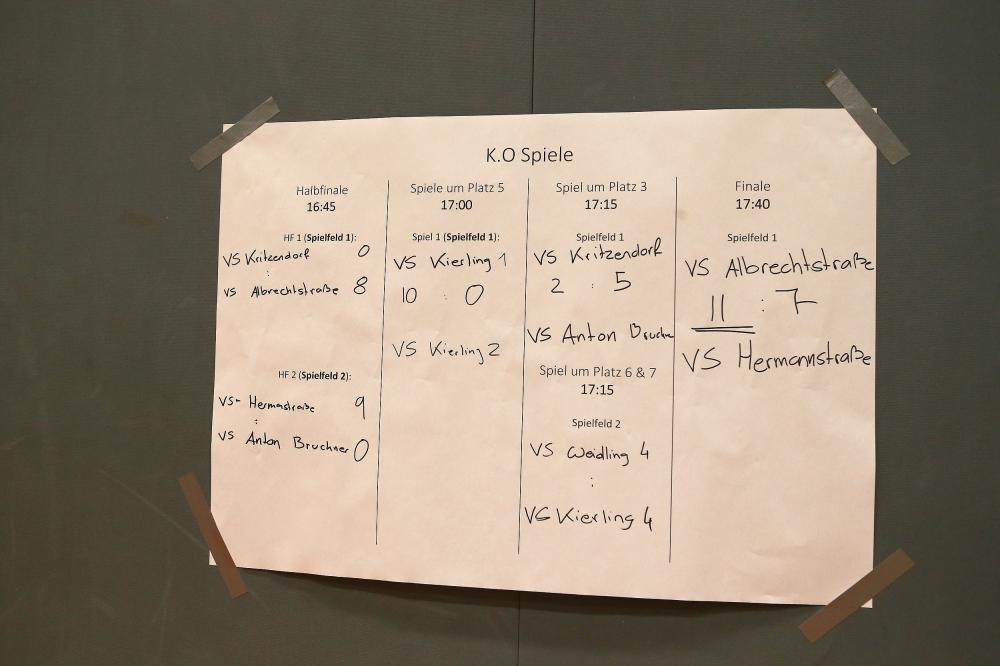 K.O Spiele
Halbfinale
16:45
HF 1 (Spielfeld 1):
VS Kritzendorf 0
:
VS Albrechtstraße 8
HF 2 (Spielfeld 2):
VS- Hermastraße 9
:
VS Anton Bruchner 0
Spiele um Platz 5
17:00
Spiel 1 (Spielfeld 1):
VS Kierling 1
10 : 0
VS Kierling 2
Spiel um Platz 3
17:15
Spielfeld 1
VS Kritzendorf
2 : 5
VS Anton Bruchne
Spiel um Platz 6 & 7
17:15
Spielfeld 2
VS Weidling 4
:
VS Kierling 4
Finale
17:40
Spielfeld 1
VS Albrechtstraße
11 : 7
VS Hermannstraße